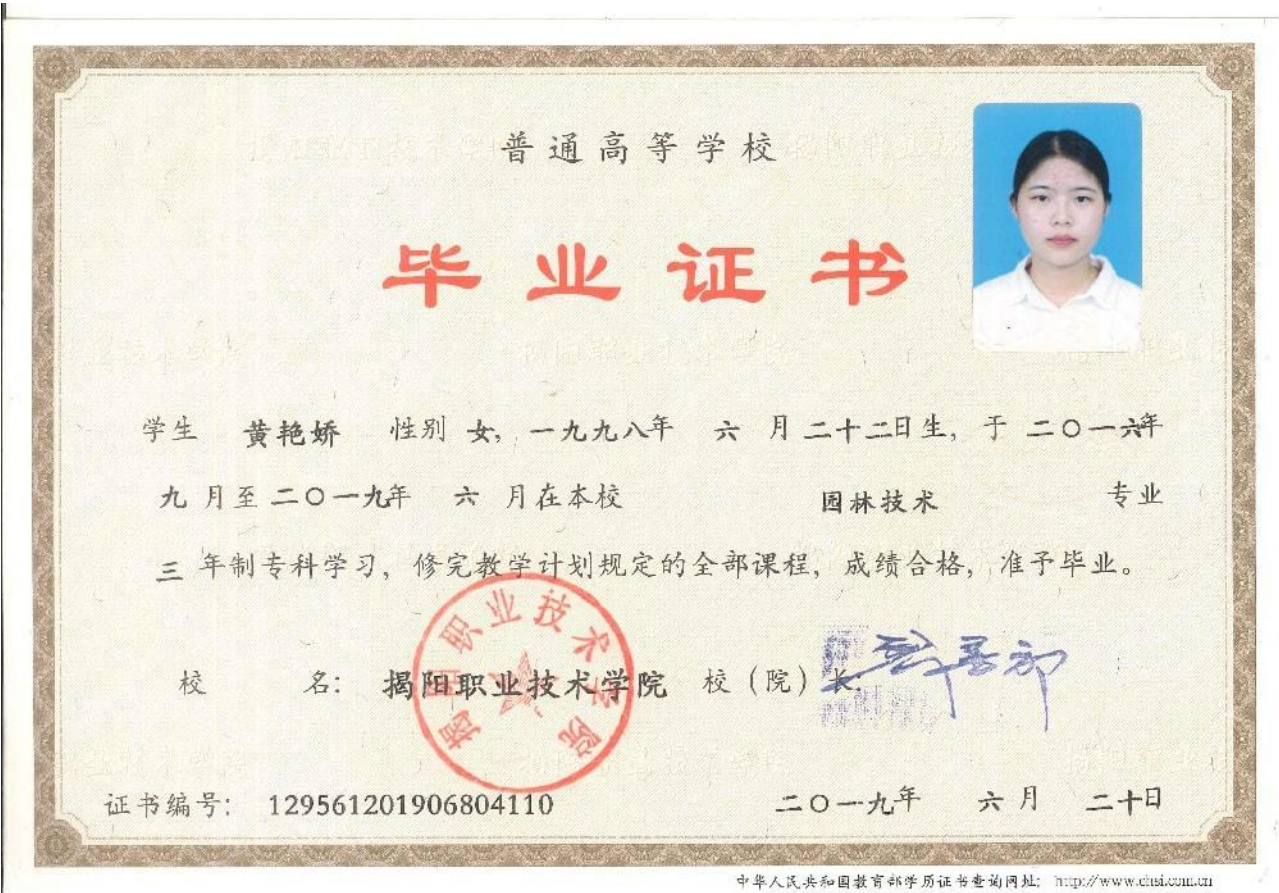 普通高等学校
毕业证书
学生 黄艳娇 性别 女, 一九九八年 六 月 二十二日生, 于 二〇一六年
九 月至 二〇一九年 六 月在本校 园林技术 专业
三 年制专科学习, 修完教学计划规定的全部课程, 成绩合格, 准予毕业。
校 名: 揭阳职业技术学院 校(院)长
揭阳职业技术学院
证书编号: 129561201906804110 二〇一九年 六 月 二十日
中华人民共和国教育部学历证书查询网址: http://www.chsi.com.cn